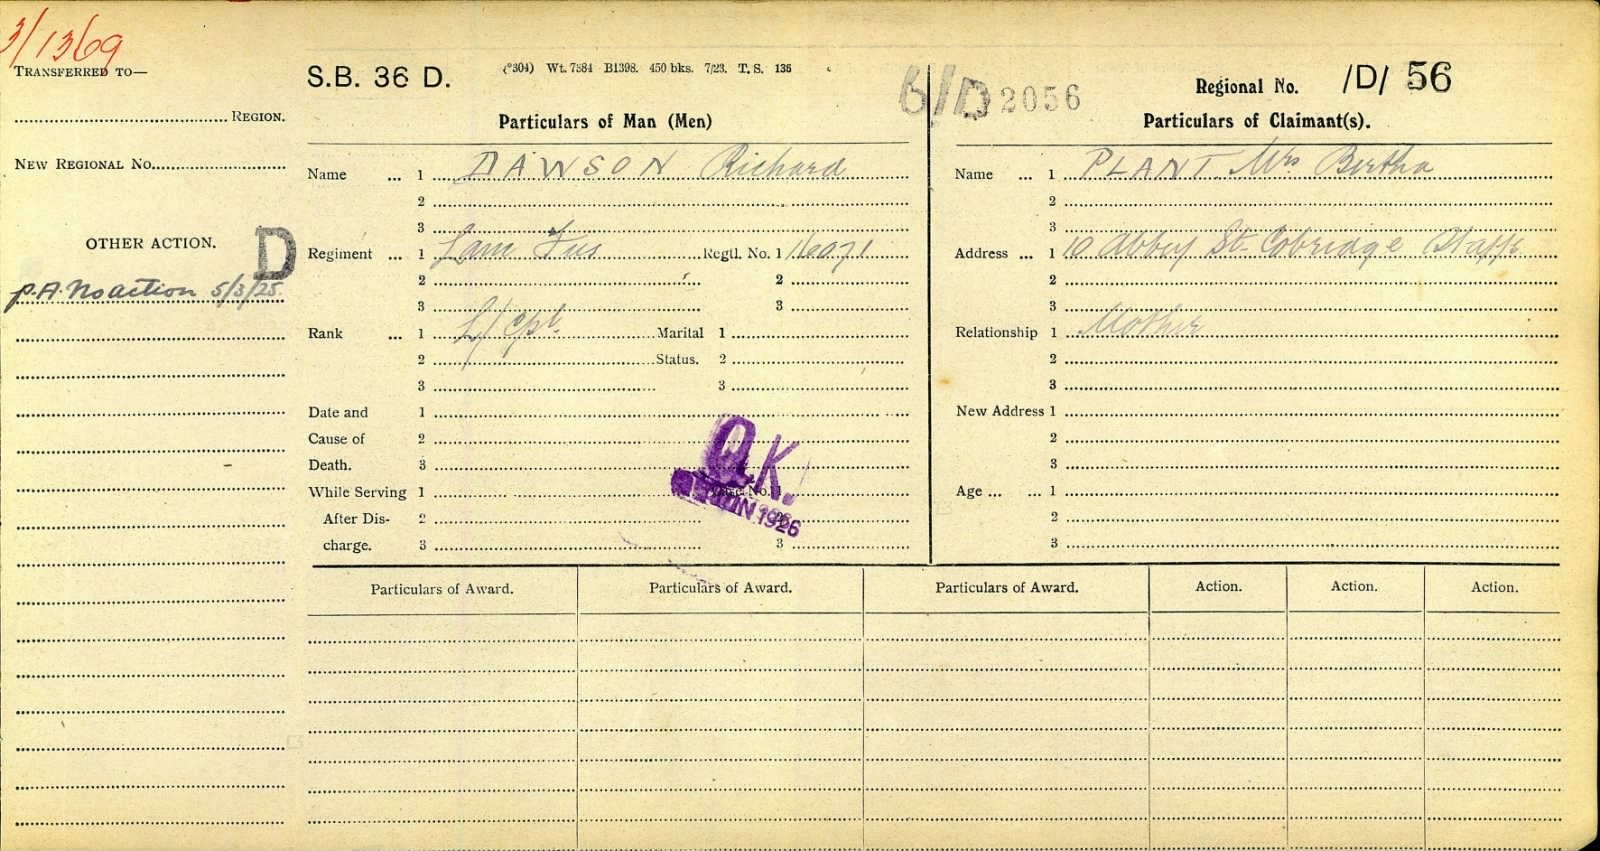 3/1369
TRANSFERRED TO—
REGION.
NEW REGIONAL No.
OTHER ACTION.
D
P.A. No action 5/3/25.
S.B. 36 D.
Wt. 7584 B1398. 450 bks. 7/23. T. S. 136
6/D 2056
Regional No. /D/ 56
Particulars of Man (Men)
Name ... 1 DAWSON Richard
2
3
Regiment ... 1 Lan Fus Regtl. No. 1 16071
2 2
3 3
Rank ... 1 L/Cpl. Marital 1
2 Status. 2
3 3
Date and 1
Cause of 2
Death. 3
While Serving 1
After Dis- 2
charge. 3 3
O.K.
JUN 1926
Particulars of Claimant(s).
Name ... 1 PLANT Mrs Bertha
2
3
Address ... 1 10 Abbey St. Cobridge Staffs
2
3
Relationship 1 Mother
2
3
New Address 1
2
3
Age ... ... 1
2
3
Particulars of Award. Particulars of Award. Particulars of Award. Action. Action. Action.